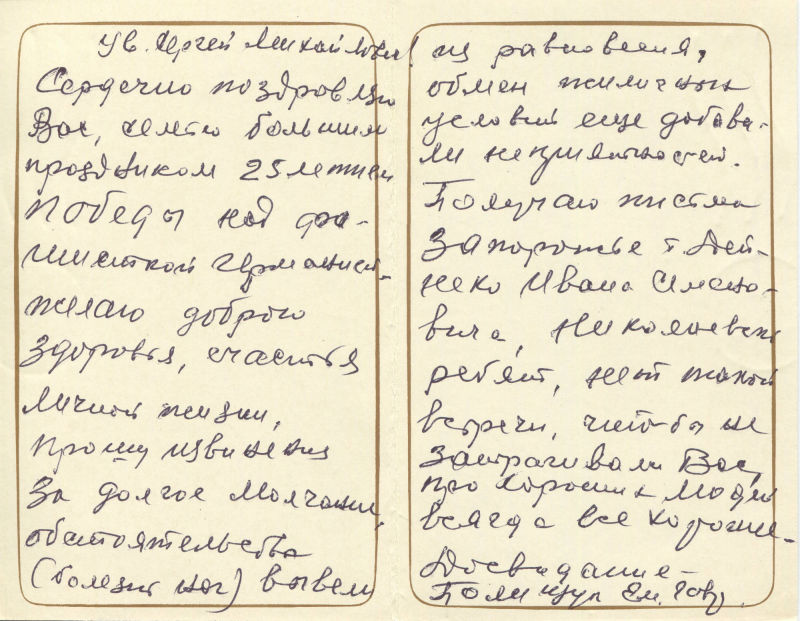 Ув. Сергей Михайлович!
Сердечно поздровляю
Вас, с этю большим
праздником 25 летием
Победы над фа-
шисткой Германией-
желаю доброго
здоровья, счастья
личной жизни,
прошу извинения
за долгое молчание,
обстоятельства
(болезнь ног) вывели
из равновесия,
обмен жиличных
условий еще добави-
ли неприятностей.
Получаю письма
Запорожье т. Дей-
неко Ивана Симено-
вича, Николаевских
ребят, нет такой
встречи, что-бы не
затрагивали Вас,
про хороших людей
всягда все хорошее-
Досвидание-
Полищук Ем.